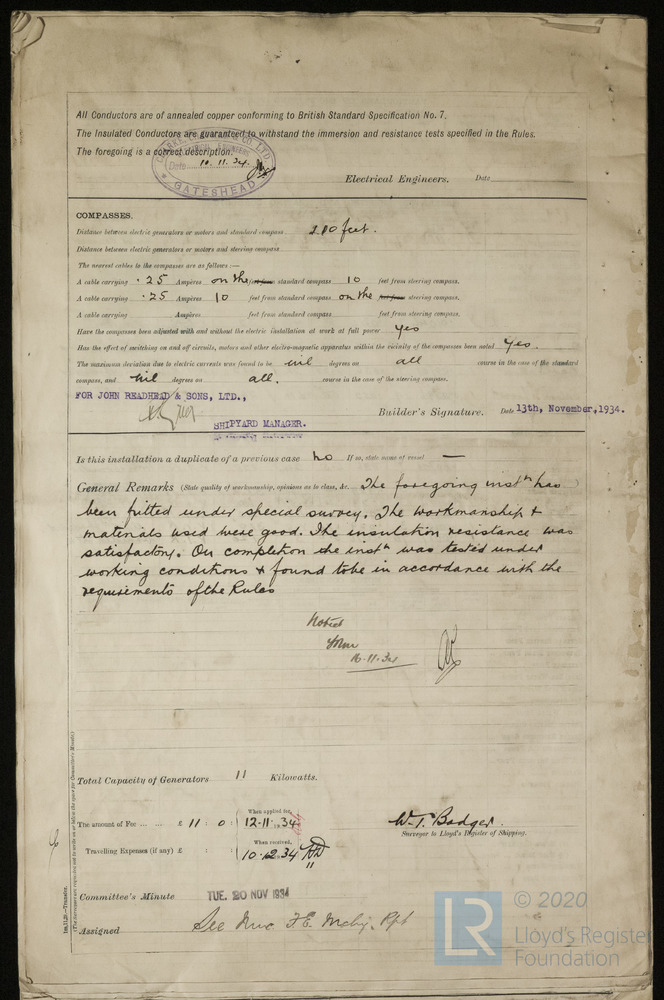 All Conductors are of annealed copper conforming to British Standard Specification No. 7.
The Insulated Conductors are guaranteed to withstand the immersion and resistance tests specified in the Rules.
The foregoing is a correct description.
Date 10.11.34.
GATESHEAD
Electrical Engineers. Date
COMPASSES.
Distance between electric generators or motors and standard compass 100 feet.
Distance between electric generators or motors and steering compass
The nearest cables to the compasses are as follows:—
A cable carrying .25 Ampères on the standard compass 10 feet from steering compass.
A cable carrying .25 Ampères 10 feet from standard compass on the steering compass.
A cable carrying Ampères feet from standard compass feet from steering compass.
Have the compasses been adjusted with and without the electric installation at work at full power yes
Has the effect of switching on and off circuits, motors and other electro-magnetic apparatus within the vicinity of the compasses been noted yes.
The maximum deviation due to electric currents was found to be nil degrees on all course in the case of the standard
compass, and nil degrees on all. course in the case of the steering compass.
FOR JOHN READHEAD & SONS, LTD.,
SHIPYARD MANAGER.
Builder's Signature. Date 13th, November, 1934.
Is this installation a duplicate of a previous case no If so, state name of vessel —
General Remarks (State quality of workmanship, opinions as to class, &c. The foregoing instn has
been fitted under special survey. The workmanship &
materials used were good. The insulation resistance was
satisfactory. On completion the instn was tested under
working conditions & found to be in accordance with the
requirements of the Rules
Noted
16.11.34
Total Capacity of Generators 11 Kilowatts.
The amount of Fee ... ... £ 11 : 0 :
When applied for,
12.11.34
Travelling Expenses (if any) £ : :
When received,
10.12.34
W.T. Badger.
Surveyor to Lloyd's Register of Shipping.
Committee's Minute TUE. 20 NOV 1934
Assigned See F.E. Mchy. Rpt
(The Surveyors are requested not to write on or below the space for Committee's Minute.)
LR
© 2020
Lloyd's Register
Foundation